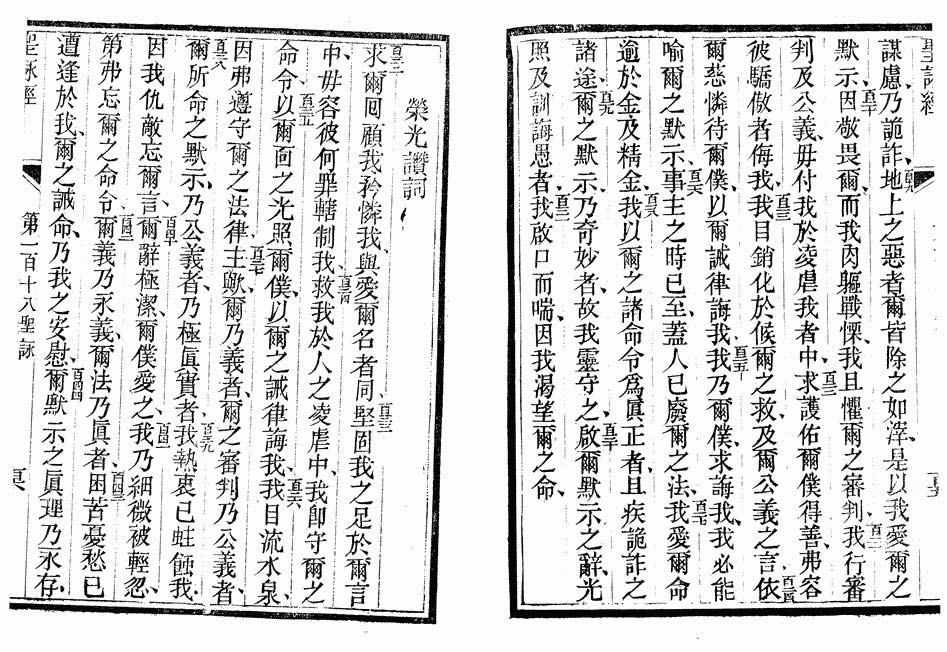 聖詠經
謀慮、乃詭詐、地上之惡者、爾皆除之如滓、是以我愛爾之
默示、因敬畏爾、而我肉軀戰慄、我且懼爾之審判、我行審
判及公義、毋付我於凌虐我者中、求護佑爾僕得善、弗容
彼驕傲者侮我、我目銷化於候爾之救、及爾公義之言、依
爾慈憐待爾僕、以爾誡律誨我、我乃爾僕、求誨我、我必能
喻爾之默示、事主之時已至、蓋人已廢爾之法、我愛爾命
逾於金及精金、我以爾之諸命令爲眞正者、且疾詭詐之
諸途、爾之默示、乃奇妙者、故我靈守之、啟爾默示之辭、光
照及訓誨愚者、我啟口而喘、因我渴望爾之命、
榮光讚詞
求爾囘顧我、矜憐我、與愛爾名者同、堅固我之足於爾言
中、毋容彼何罪轄制我、救我於人之凌虐中、我卽守爾之
命令、以爾面之光照爾僕、以爾之誡律誨我、我目流水泉、
因弗遵守爾之法律、主歟、爾乃義者、爾之審判乃公義者
爾所命之默示、乃公義者、乃極眞實者、我熱衷已蛀蝕我、
因我仇敵忘爾言、爾辭極潔、爾僕愛之、我乃細微被輕忽、
第弗忘爾之命令、爾義乃永義、爾法乃眞者、困苦憂愁已
遭逢於我、爾之誡命、乃我之安慰、爾默示之眞理乃永存、
聖詠經
第一百十八聖詠